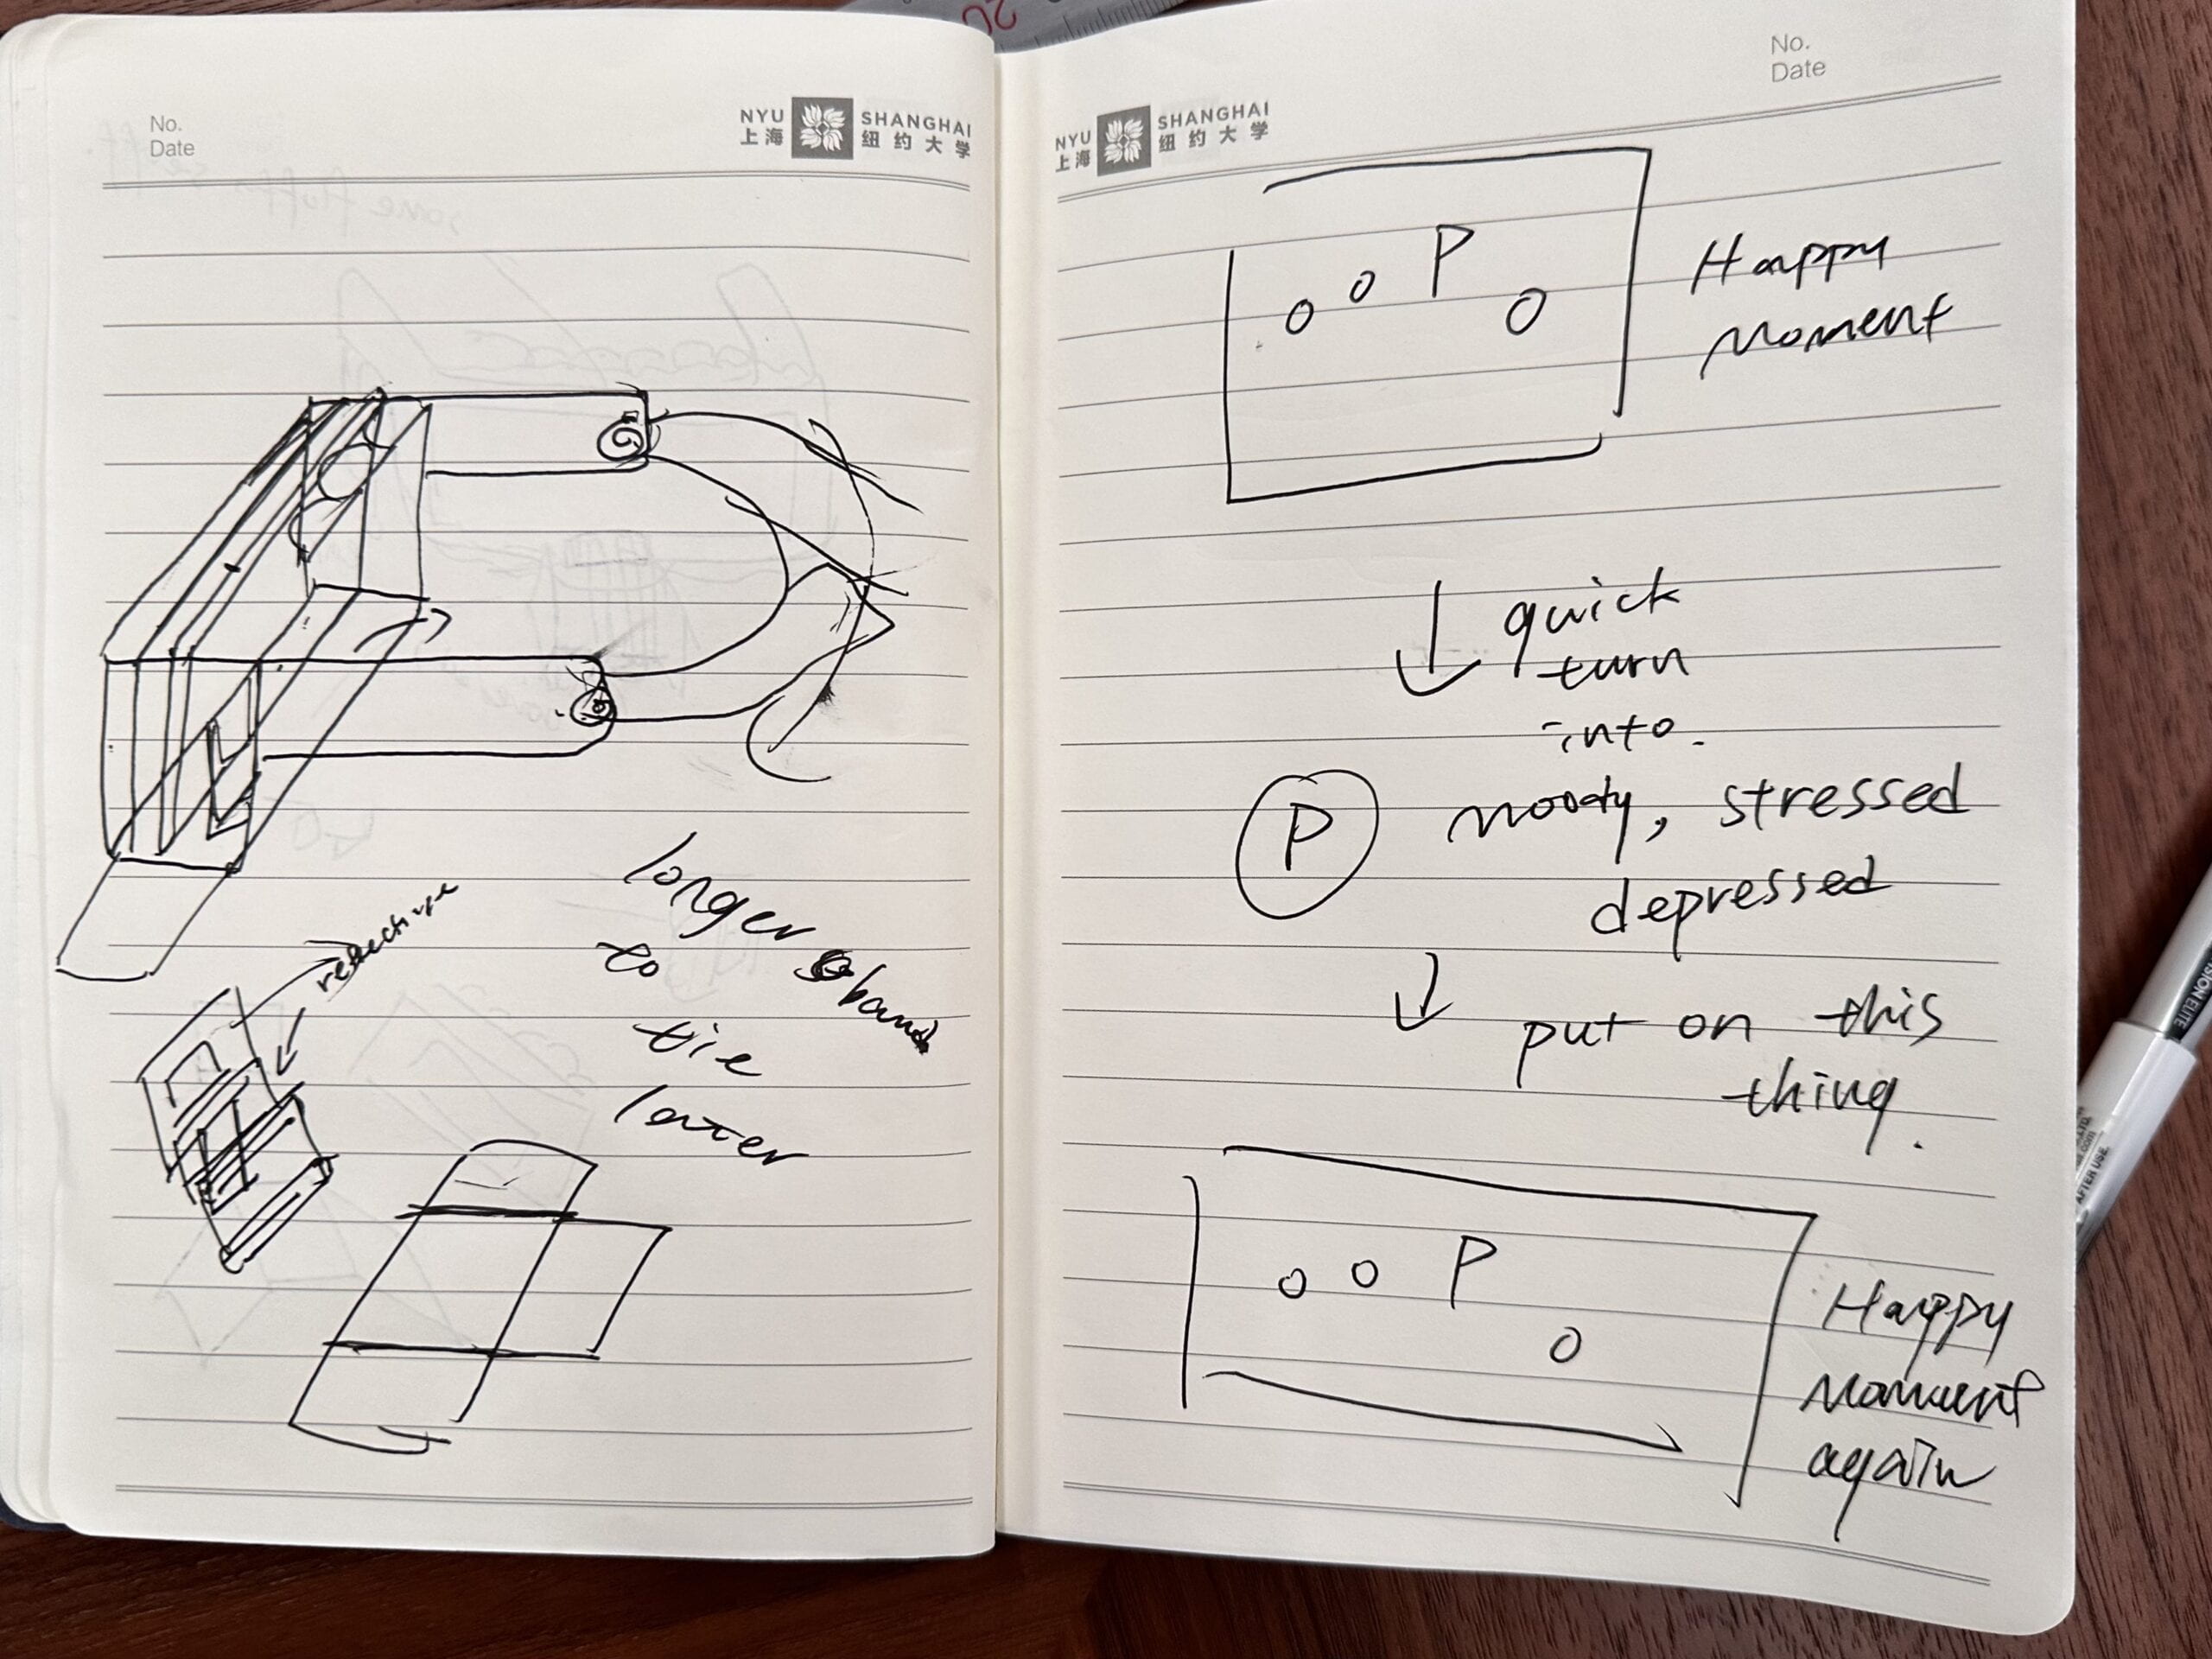 No.
Date
NYU SHANGHAI
上海 纽约大学
longer band
to
tie
later
No.
Date
NYU SHANGHAI
上海 纽约大学
P
o o O
Happy
Moment
quick
turn
into.
P moody, stressed
depressed
put on this
thing.
o o P
o
Happy
Moment
again
20
AFTER USE